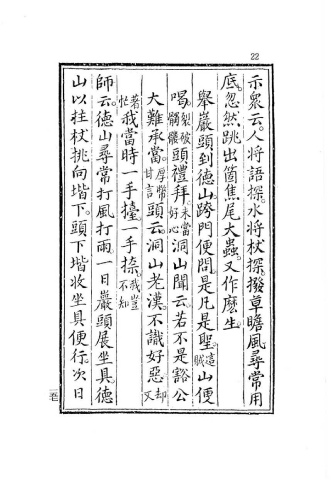 22
示衆云。人將語探。水將杖探。撥草瞻風尋常用
底。忽然跳出箇焦尾大蟲。又作麽生
舉巖頭到德山。跨門便問。是凡是聖。這賊山便
喝。裂破髑髏頭禮拜。未當好心洞山聞云。若不是豁公
大難承當。厚幣甘言頭云。洞山老漢。不識好惡。却又
著忙我當時一手擡一手捺。我豈不知
師云。德山尋常打風打雨。一日巖頭展坐具。德
山以拄杖挑向堦下。頭下堦收坐具便行。次日